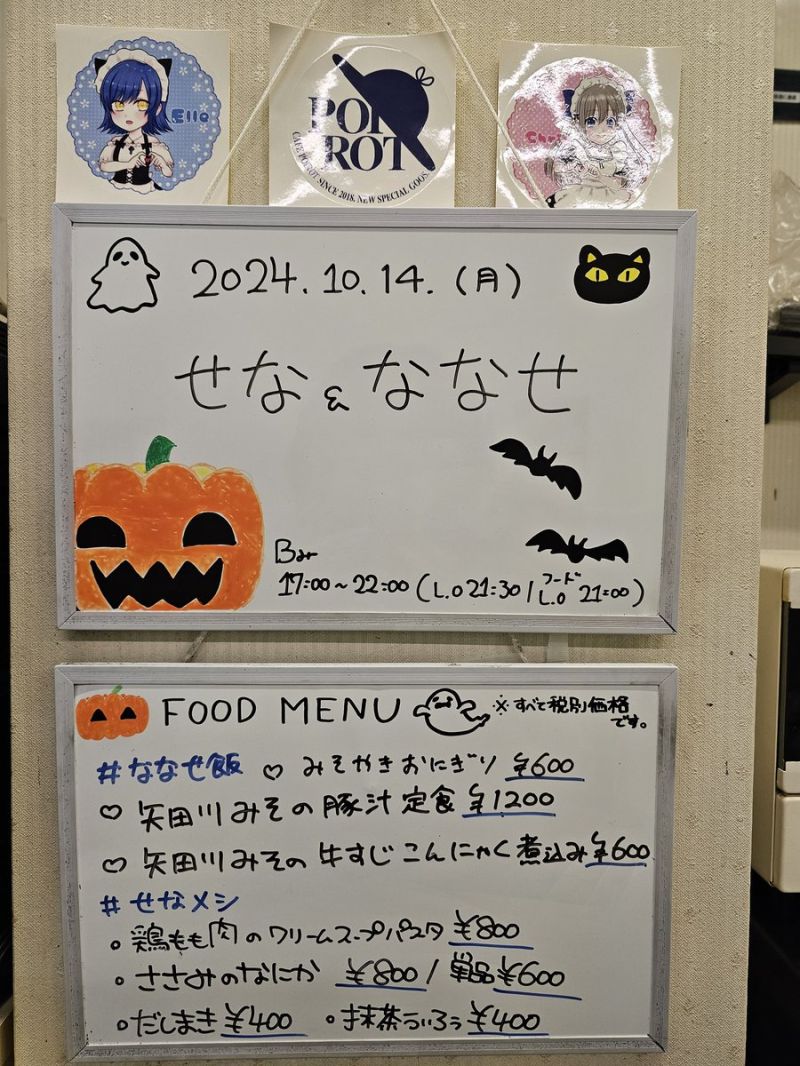 Elle
POI
ROT
CAFE POIROT. SINCE 2018. NEW SPECIAL GOOS.
2024.10.14.(月)
せな & ななせ
Bar
17:00~22:00 (L.O 21:30 / フードL.O 21:00)
FOOD MENU ※すべて税別価格です。
#ななせ飯 ♡ みそやきおにぎり ¥600
♡ 矢田川みその豚汁定食 ¥1200
♡ 矢田川みその牛すじこんにゃく煮込み ¥600
#せなメシ
。鶏もも肉のクリームスープパスタ ¥800
。ささみのなにか ¥800 / 単品¥600
。だしまき ¥400 。抹茶ういろう ¥400